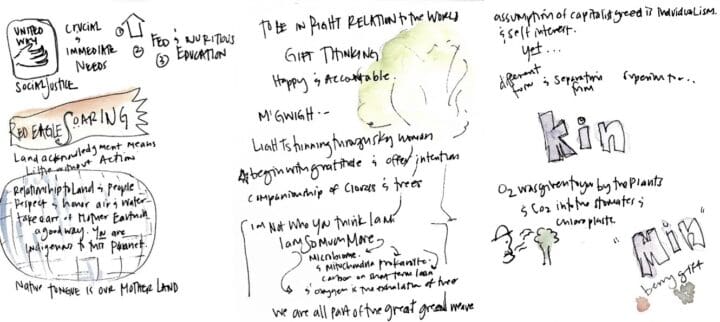 UNITED WAY
CRUCIAL & IMMEDIATE NEEDS
①
②
③
FED & NUTRITIOUS
EDUCATION
SOCIAL JUSTICE
RED EAGLE SOARING
Land acknowledgment means
little without Action
Relationship to Land & people
Respect & honor air & water
take care of Mother Earth in
a good way. You are
Indigenous to this planet.
Native TONGUE IS OUR MOTHER LAND
TO BE IN RIGHT RELATION to the WORLD
GIFT THINKING
Happy & Accountable.
M'GWIGH...
Light shinning through sky woman
begin with gratitude & offer intention
companionship of clouds & trees
I'm Not Who You think I am
I am SO Much More
Microbiome
& Mitochondria prokaryote
carbon on short term loan
& oxygen is the exhalation of trees
we are all part of the great green weave
assumption of capitalist greed is Individualism.
& self interest.
Yet...
different from & separate from superior to...
kin
O2 was given to you by the plants
& CO2 into the stomates &
chloroplasts
"Min"
berry gift